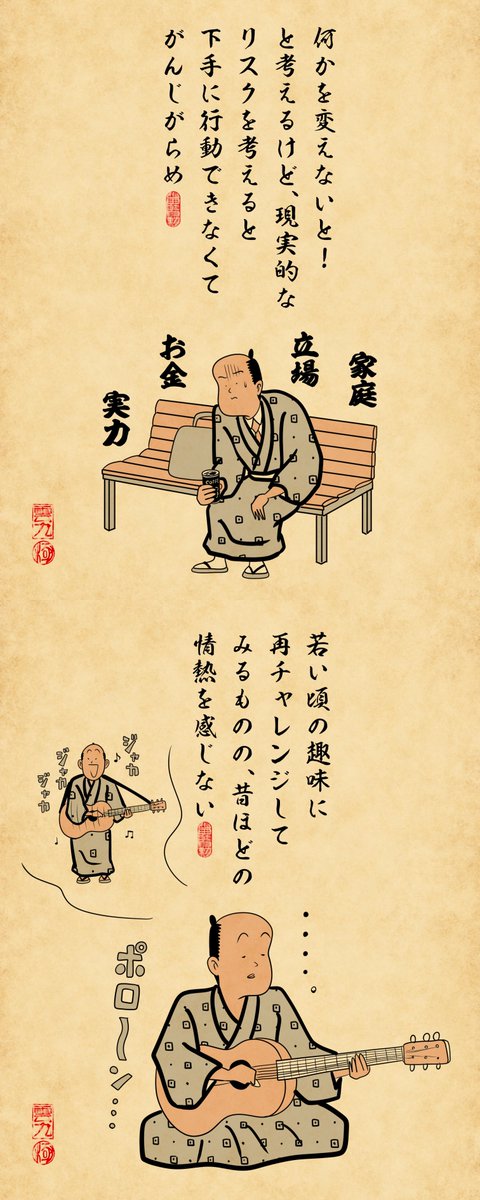 何かを変えないと！
と考えるけど、現実的な
リスクを考えると
下手に行動できなくて
がんじがらめ
家庭
立場
お金
実力
若い頃の趣味に
再チャレンジして
みるものの、昔ほどの
情熱を感じない
ジャカ
ジャカ
ジャカ
・・・・。
ポロ〜ン・・・